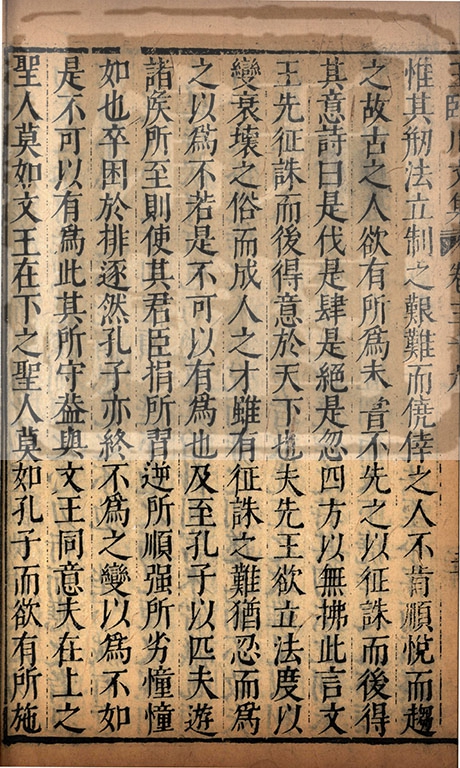 王臨川文集 卷三十九
惟其剏法立制之艱難而僥倖之人不肯順悅而趨
之故古之人欲有所爲未嘗不先之以征誅而後得
其意詩曰是伐是肆是絕是忽四方以無拂此言文
王先征誅而後得意於天下也夫先王欲立法度以
變衰壞之俗而成人之才雖有征誅之難猶忍而爲
之以爲不若是不可以有爲也及至孔子以匹夫遊
諸侯所至則使其君臣捐所習逆所順强所劣憧憧
如也卒困於排逐然孔子亦終不爲之變以爲不如
是不可以有爲此其所守葢與文王同意夫在上之
聖人莫如文王在下之聖人莫如孔子而欲有所施